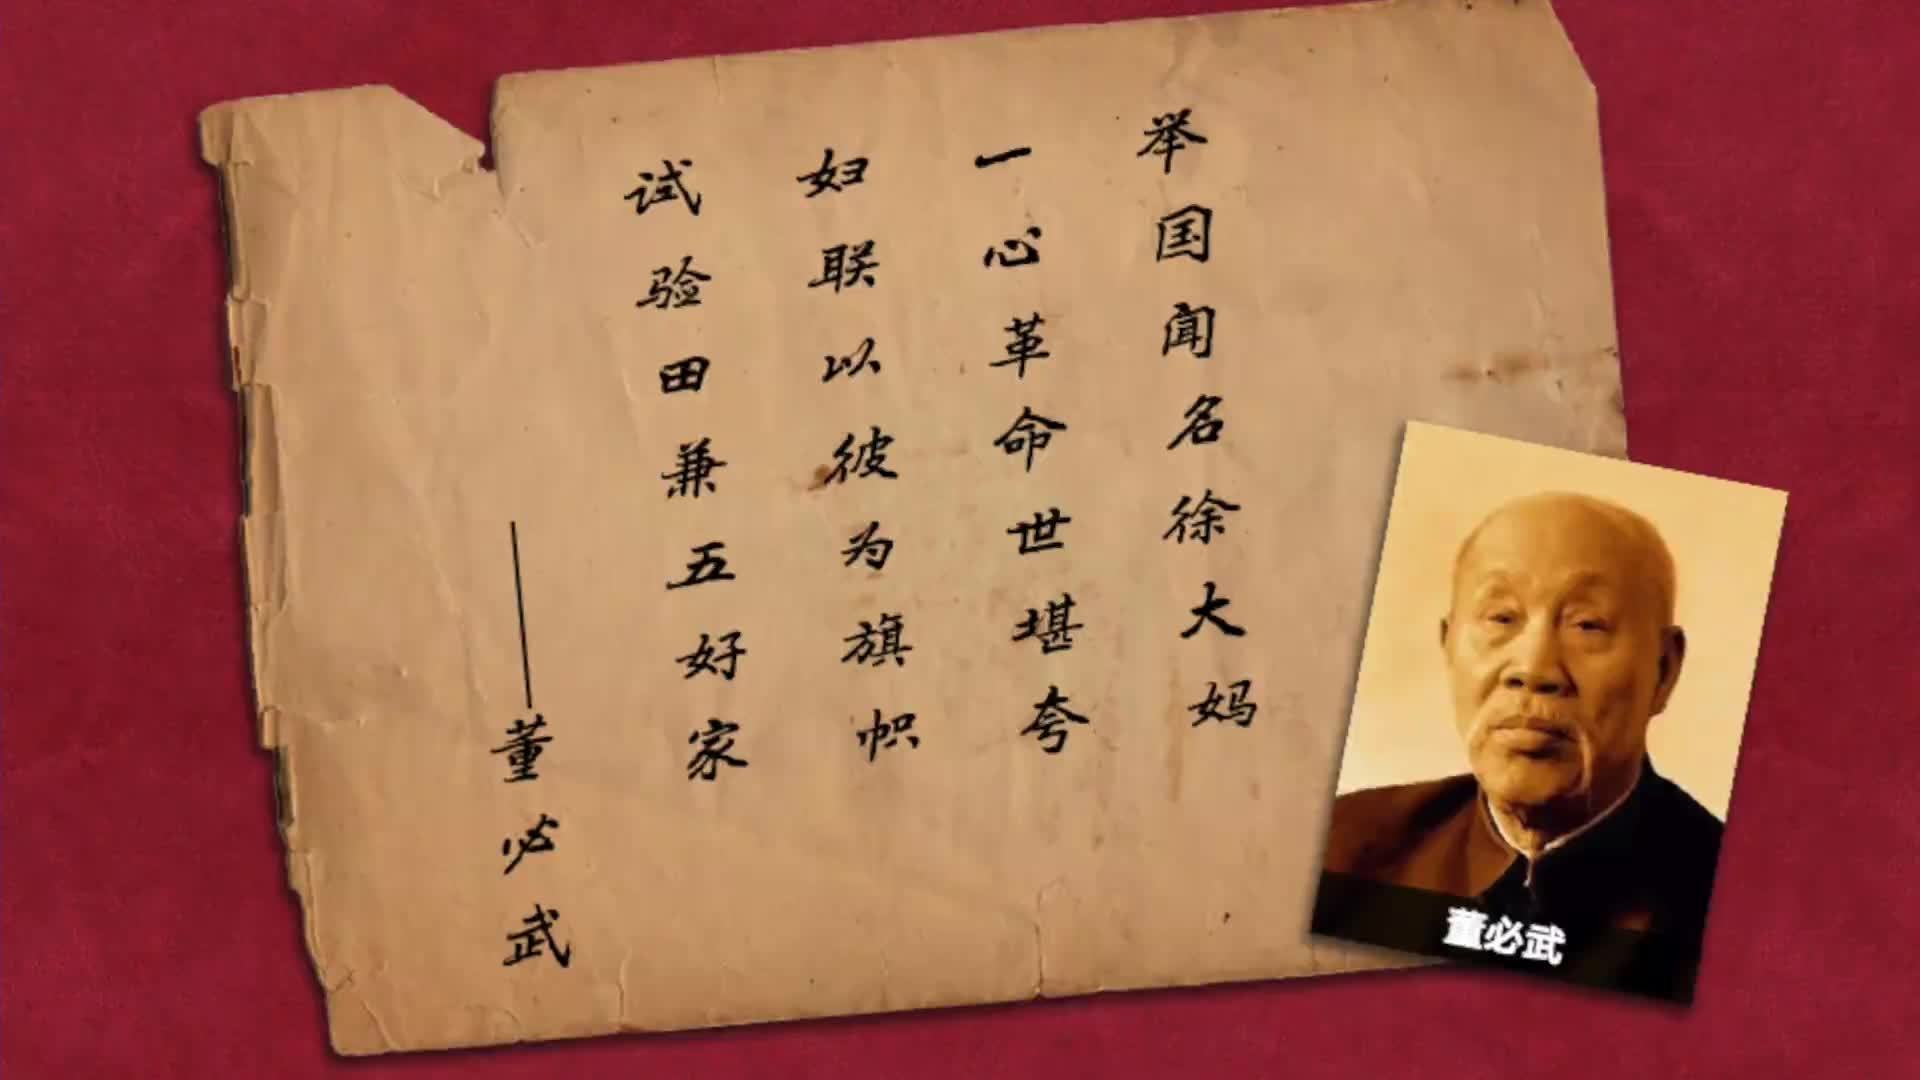 举国闻名徐大妈
一心革命世堪夸
妇联以彼为旗帜
试验田兼五好家
——董必武
董必武